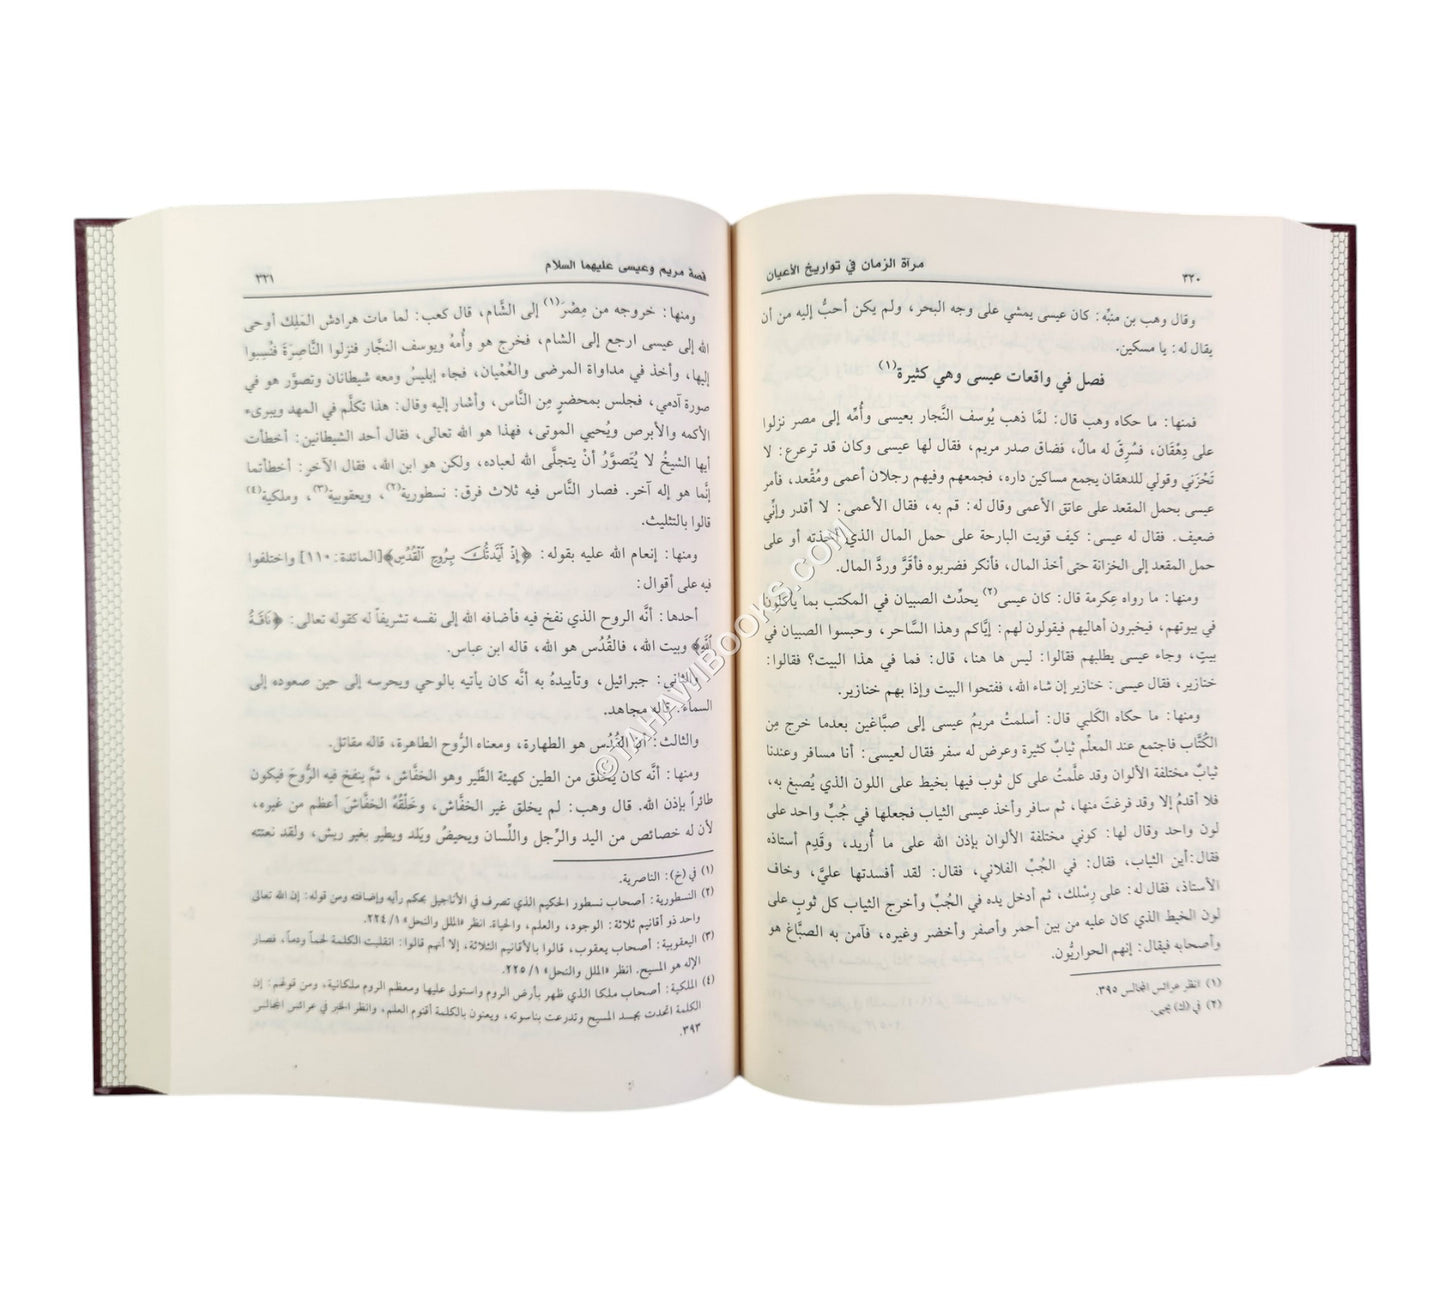 ٣٢٠
مرآة الزمان في تواريخ الأعيان
وقال وهب بن منبِّه: كان عيسى يمشي على وجه البحر، ولم يكن أحبُّ إليه من أن
يقال له: يا مسكين.
فصل في واقعات عيسى وهي كثيرة(١)
فمنها: ما حكاه وهب قال: لمَّا ذهب يُوسف النَّجار بعيسى وأُمّه إلى مصر نزلوا
على دِهْقَان، فسُرِقَ له مالٌ، فضاق صدر مريم، فقال لها عيسى وكان قد ترعرع: لا
تَحْزَني وقولي للدهقان يجمع مساكين داره، فجمعهم وفيهم رجلان أعمى ومُقْعد، فأمر
عيسى بحمل المقعد على عاتق الأعمى وقال له: قم به، فقال الأعمى: لا أقدر وإنِّي
ضعيف. فقال له عيسى: كيف قويت البارحة على حمل المال الذي أخذته أو على
حمل المقعد إلى الخزانة حتى أخذ المال، فأنكر فضربوه فأقرَّ وردَّ المال.
ومنها: ما رواه عِكرمة قال: كان عيسى(٢) يحدِّث الصبيان في المكتب بما يأكلون
في بيوتهم، فيخبرون أهاليهم فيقولون لهم: إيَّاكم وهذا السَّاحر، وحبسوا الصبيان في
بيتٍ، وجاء عيسى يطلبهم فقالوا: ليس ها هنا، قال: فما في هذا البيت؟ فقالوا:
خنازير، فقال عيسى: خنازير إن شاء الله، ففتحوا البيت وإذا بهم خنازير.
ومنها: ما حكاه الكَلبي قال: أسلمتْ مريمُ عيسى إلى صبَّاغين بعدما خرج مِن
الكُتَّاب فاجتمع عند المعلِّم ثيابٌ كثيرة وعرض له سفر فقال لعيسى: أنا مسافر وعندنا
ثيابٌ مختلفة الألوان وقد علَّمتُ على كل ثوب فيها بخيط على اللون الذي يُصبغ به،
فلا أقدمُ إلا وقد فرغتَ منها، ثم سافر وأخذ عيسى الثياب فجعلها في جُبٍّ واحد على
لون واحد وقال لها: كوني مختلفة الألوان بإذن الله على ما أُريد، وقَدِم أستاذه
فقال:أين الثياب، فقال: في الجُبِّ الفلاني، فقال: لقد أفسدتها عليَّ، وخاف
الأستاذ، فقال له: على رِسْلك، ثم أدخل يده في الجُبِّ وأخرج الثياب كل ثوبٍ على
لون الخيط الذي كان عليه من بين أحمر وأصفر وأخضر وغيره، فآمن به الصبَّاغ هو
وأصحابه فيقال: إنهم الحواريُّون.
(١) انظر عرائس المجالس ٣٩٥.
(٢) في (ك) يجيي.
قصة مريم وعيسى عليهما السلام
٣٢١
ومنها: خروجه من مِصْرَ(١) إلى الشَّام، قال كعب: لما مات هرادش المَلِك أوحى
الله إلى عيسى ارجع إلى الشام، فخرج هو وأُمهُ ويوسف النجار فنزلوا النَّاصِرَةَ فنُسِبوا
إليها، وأخذ في مداواة المرضى والعُمْيان، فجاء إبليسُ ومعه شيطانان وتصوَّر هو في
صورة آدمي، فجلس بمحضرٍ مِن النَّاس، وأشار إليه وقال: هذا تكلَّم في المهد ويبرىء
الأكمه والأبرص ويُحيي الموتى، فهذا هو الله تعالى، فقال أحد الشيطانين: أخطأت
أيها الشيخُ لا يُتَصوَّرُ أنْ يتجلَّى الله لعباده، ولكن هو ابن الله، فقال الآخر: أخطأتما
إنَّما هو إله آخر. فصار النَّاس فيه ثلاث فرق: نسطورية(٢)، ويعقوبية(٣)، وملكية(٤)
قالوا بالتثليث.
ومنها: إنعام الله عليه بقوله: ﴿إِذْ أَيَّدتُّكَ بِرُوحِ ٱلْقُدُسِ﴾[المائدة: ١١٠] واختلفوا
فيه على أقوال:
أحدها: أنَّه الروح الذي نفخ فيه فأضافه الله إلى نفسه تشريفاً له كقوله تعالى: ﴿نَاقَةُ
ٱللَّهِ﴾ وبيت الله، فالقُدُس هو الله، قاله ابن عباس.
والثاني: جبرائيل، وتأييدهُ به أنَّه كان يأتيه بالوحي ويحرسه إلى حين صعوده إلى
السماء. قاله مجاهد.
والثالث: أنَّ القُدُس هو الطهارة، ومعناه الرُّوح الطاهرة، قاله مقاتل.
ومنها: أنَّه كان يُخْلق من الطين كهيئة الطَّير وهو الخفَّاش، ثمَّ ينفخ فيه الرُّوحَ فيكون
طائراً بإذن الله. قال وهب: لم يخلق غير الخفَّاش، وخَلْقُهُ الخفَّاشَ أعظم من غيره،
لأن له خصائص من اليد والرِّجل واللِّسان ويحيضُ ويَلد ويطير بغير ريش، ولقد نعتته
(١) في (خ): الناصرية.
(٢) النسطورية: أصحاب نسطور الحكيم الذي تصرف في الأناجيل بحكم رأيه وإضافته ومن قوله: إن الله تعالى
واحد ذو أقانيم ثلاثة: الوجود، والعلم، والحياة. انظر «الملل والنحل» ١/ ٢٢٤.
(٣) اليعقوبية: أصحاب يعقوب، قالوا بالأقانيم الثلاثة، إلا أنهم قالوا: انقلبت الكلمة لحماً ودماً، فصار
الإله هو المسيح. انظر «الملل والنحل» ١/ ٢٢٥.
(٤) الملكية: أصحاب ملكا الذي ظهر بأرض الروم واستولى عليها ومعظم الروم ملكانية، ومن قولهم: إن
الكلمة اتحدت بجسد المسيح وتدرعت بناسوته، ويعنون بالكلمة أقنوم العلم، وانظر الخبر في عرائس المجالس
٣٩٣.
©TAHAWIBOOKS.COM